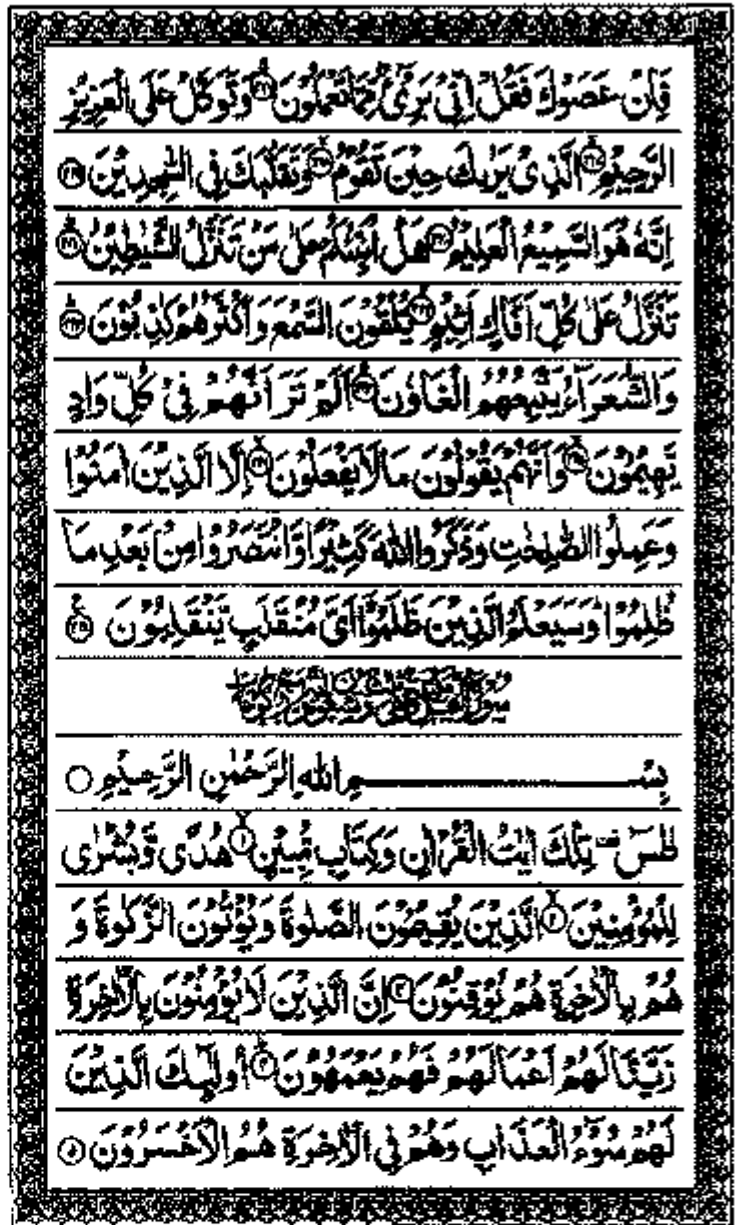 فَاِنْ عَصَوْكَ فَقُلْ اِنِّىْ بَرِىْٓءٌ مِّمَّا تَعْمَلُوْنَ ﴿۲۱۶﴾ وَتَوَكَّلْ عَلَى الْعَزِيْزِ
الرَّحِيْمِ ﴿۲۱۷﴾ الَّذِىْ يَرٰىكَ حِيْنَ تَقُوْمُ ﴿۲۱۸﴾ وَتَقَلُّبَكَ فِى السّٰجِدِيْنَ ﴿۲۱۹﴾
اِنَّهٗ هُوَ السَّمِيْعُ الْعَلِيْمُ ﴿۲۲۰﴾ هَلْ اُنَبِّئُكُمْ عَلٰى مَنْ تَنَزَّلُ الشَّيٰطِيْنُ ﴿۲۲۱﴾
تَنَزَّلُ عَلٰى كُلِّ اَفَّاكٍ اَثِيْمٍ ﴿۲۲۲﴾ يُّلْقُوْنَ السَّمْعَ وَاَكْثَرُهُمْ كٰذِبُوْنَ ﴿۲۲۳﴾
وَالشُّعَرَآءُ يَتَّبِعُهُمُ الْغَاوٗنَ ﴿۲۲۴﴾ اَلَمْ تَرَ اَنَّهُمْ فِىْ كُلِّ وَادٍ
يَّهِيْمُوْنَ ﴿۲۲۵﴾ وَاَنَّهُمْ يَقُوْلُوْنَ مَا لَا يَفْعَلُوْنَ ﴿۲۲۶﴾ اِلَّا الَّذِيْنَ اٰمَنُوْا
وَعَمِلُوا الصّٰلِحٰتِ وَذَكَرُوا اللّٰهَ كَثِيْرًا وَّانْتَصَرُوْا مِنْۢ بَعْدِ مَا
ظُلِمُوْا ؕ وَسَيَعْلَمُ الَّذِيْنَ ظَلَمُوْۤا اَىَّ مُنْقَلَبٍ يَّنْقَلِبُوْنَ ﴿۲۲۷﴾
بِسْمِ اللّٰهِ الرَّحْمٰنِ الرَّحِيْمِ
طٰسٓ ۚ تِلْكَ اٰيٰتُ الْقُرْاٰنِ وَكِتَابٍ مُّبِيْنٍ ﴿۱﴾ هُدًى وَّبُشْرٰى
لِلْمُؤْمِنِيْنَ ﴿۲﴾ الَّذِيْنَ يُقِيْمُوْنَ الصَّلٰوةَ وَيُؤْتُوْنَ الزَّكٰوةَ وَ
هُمْ بِالْاٰخِرَةِ هُمْ يُوْقِنُوْنَ ﴿۳﴾ اِنَّ الَّذِيْنَ لَا يُؤْمِنُوْنَ بِالْاٰخِرَةِ
زَيَّنَّا لَهُمْ اَعْمَالَهُمْ فَهُمْ يَعْمَهُوْنَ ﴿۴﴾ اُولٰٓئِكَ الَّذِيْنَ
لَهُمْ سُوْٓءُ الْعَذَابِ وَهُمْ فِى الْاٰخِرَةِ هُمُ الْاَخْسَرُوْنَ ﴿۵﴾